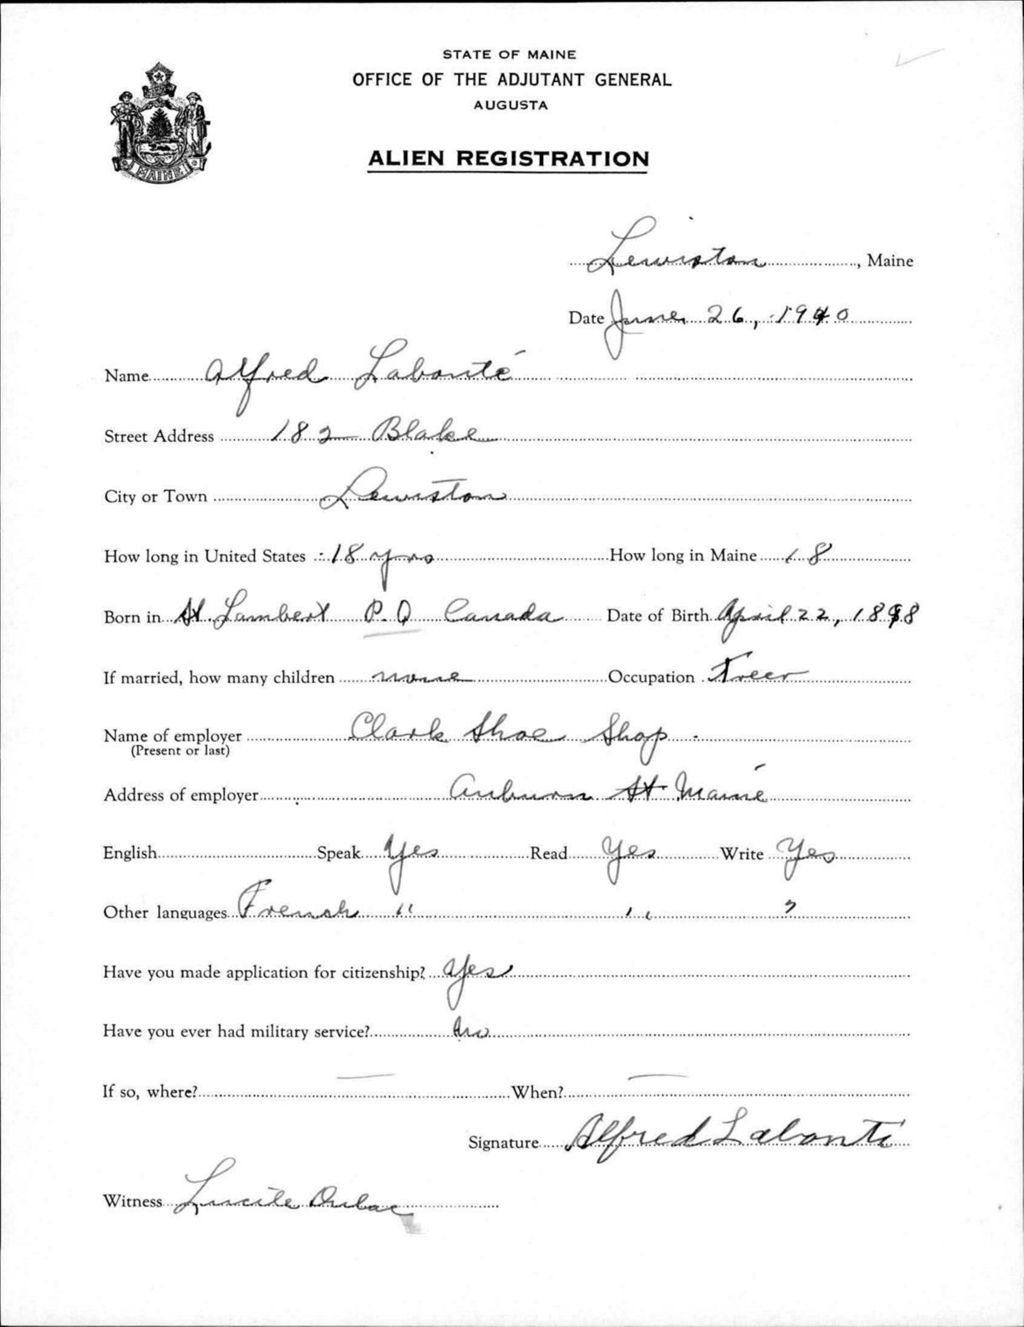 STATE OF MAINE
OFFICE OF THE ADJUTANT GENERAL
AUGUSTA
ALIEN REGISTRATION
MAINE
Lewiston, Maine
Date June 26, 1940
Name Alfred Labonté
Street Address 182 Blake
City or Town Lewiston
How long in United States 18 yrs How long in Maine 18
Born in St Lambert P.Q Canada Date of Birth April 22, 1898
If married, how many children none Occupation Treer
Name of employer Clark Shoe Shop
(Present or last)
Address of employer Auburn St Maine
English Speak Yes Read Yes Write Yes
Other languages French " " "
Have you made application for citizenship? Yes
Have you ever had military service? no
If so, where? — When? —
Signature Alfred Labonté
Witness Lucile